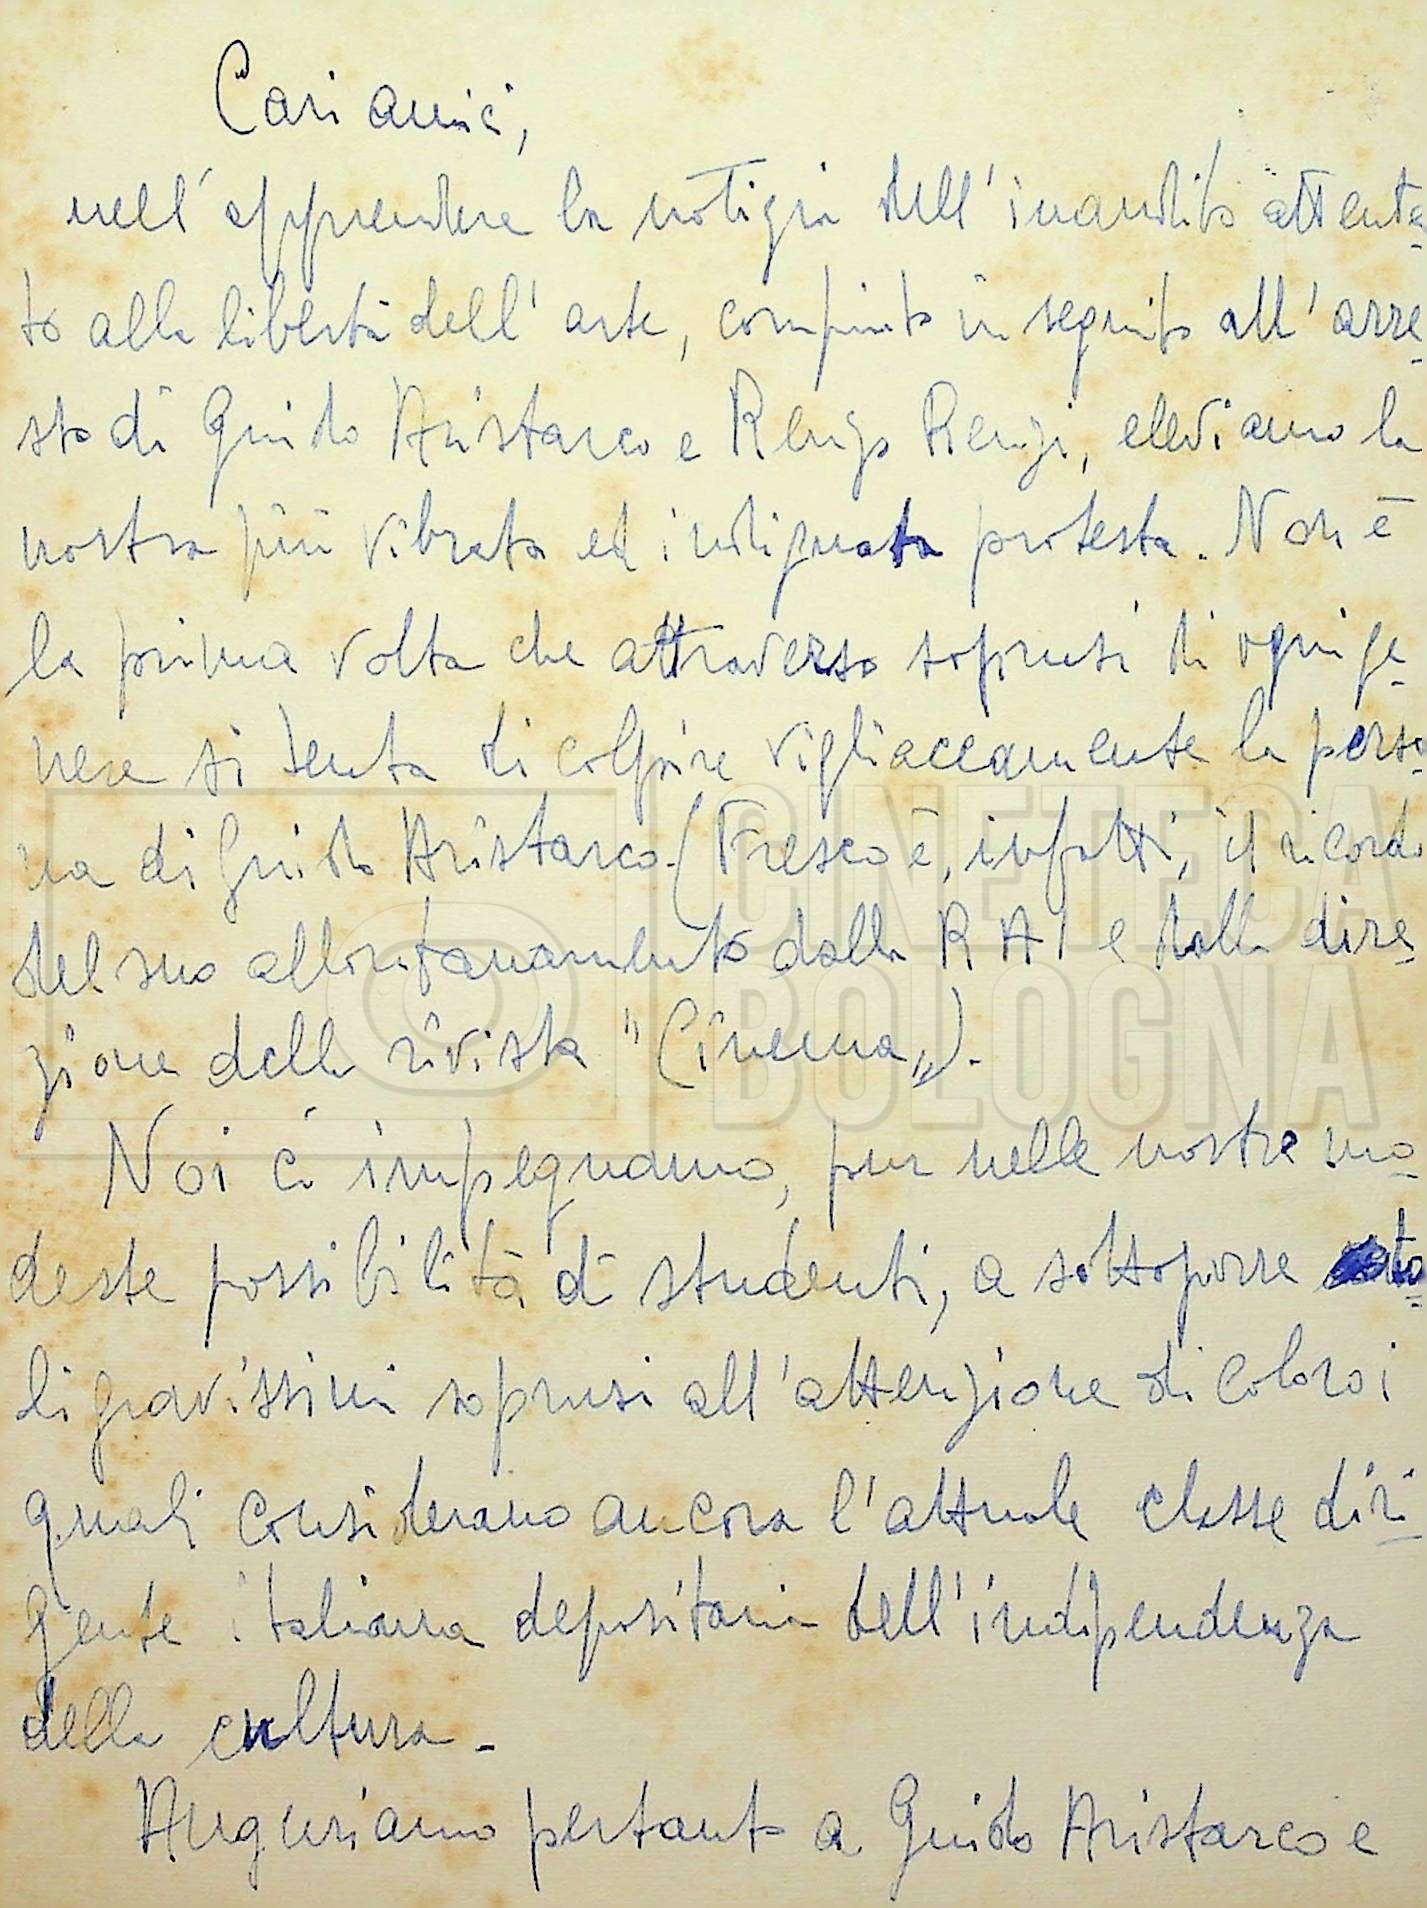 Cari amici,
nell'apprendere la notizia dell'inaudito attenta-
to alla libertà dell'arte, compiuto in seguito all'arre-
sto di Guido Aristarco e Renzo Renzi, eleviamo la
nostra più vibrata ed indignata protesta. Non è
la prima volta che attraverso soprusi di ogni ge-
nere si tenta di colpire vigliaccamente la perso-
na di Guido Aristarco. (Fresco è, infatti, il ricordo
del suo allontanamento dalla RAI e dalla dire-
zione della rivista "Cinema").
Noi ci impegnamo, pur nelle nostre mo-
deste possibilità di studenti, a sottoporre ta-
li gravissimi soprusi all'attenzione di coloro i
quali considerano ancora l'attuale classe diri-
gente italiana depositaria dell'indipendenza
della cultura.
Auguriamo pertanto a Guido Aristarco e
CINETECA
BOLOGNA